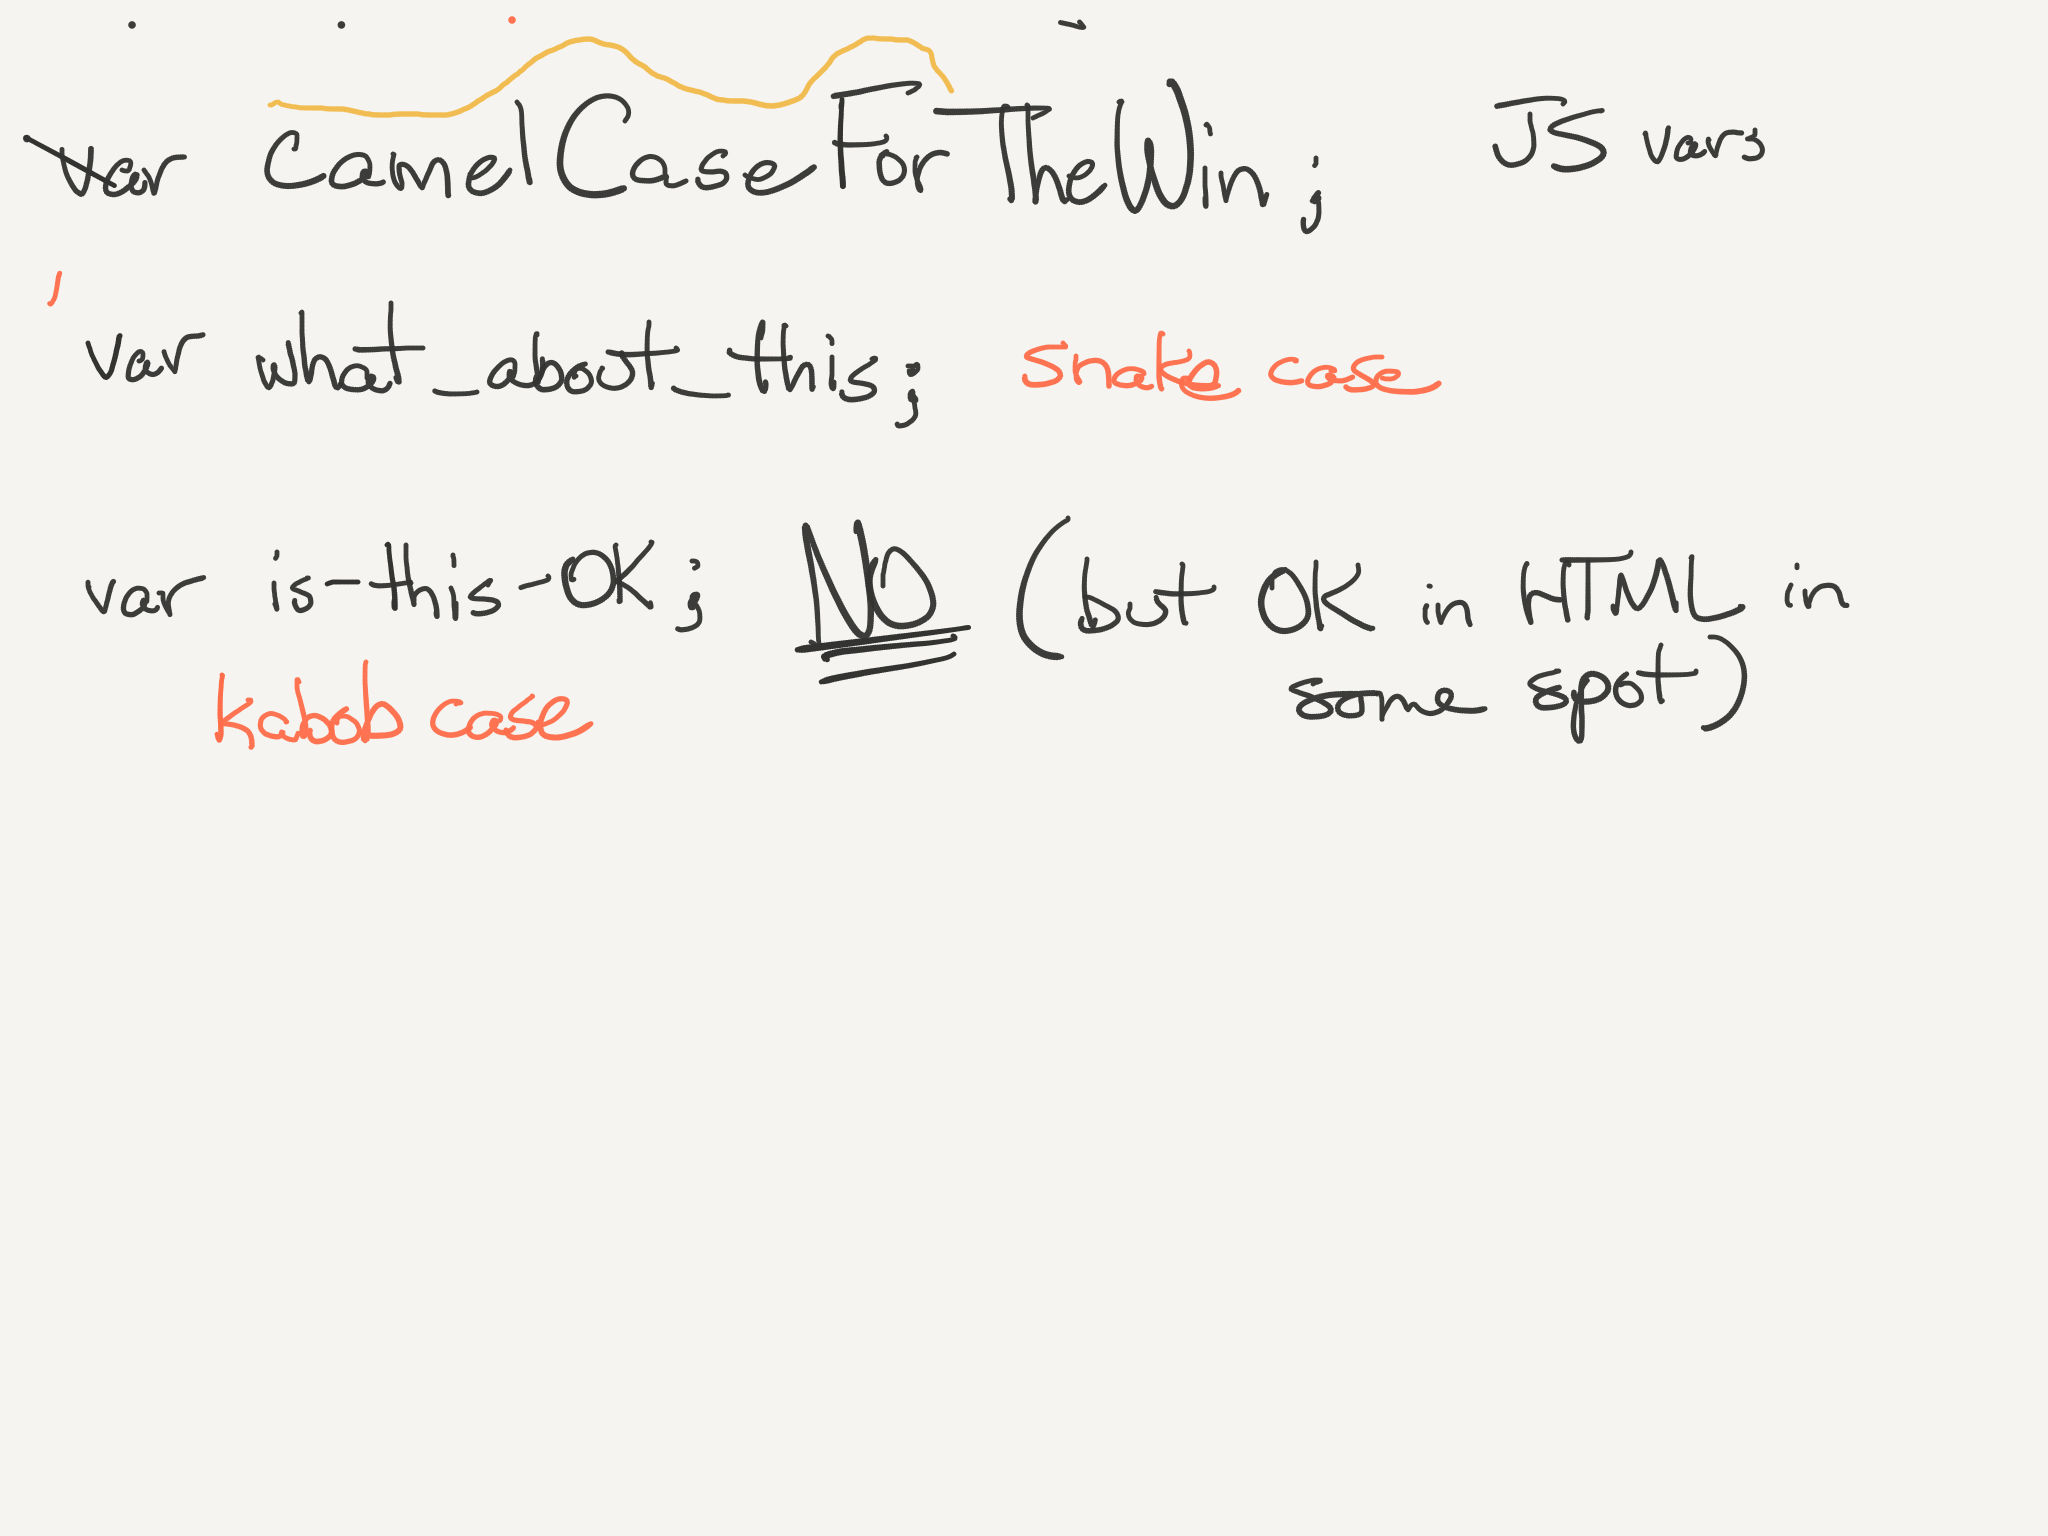 var camelCaseForTheWin; JS vars
var what_about_this; snake case
var is-this-OK; NO (but OK in HTML in
some spot)
kabob case